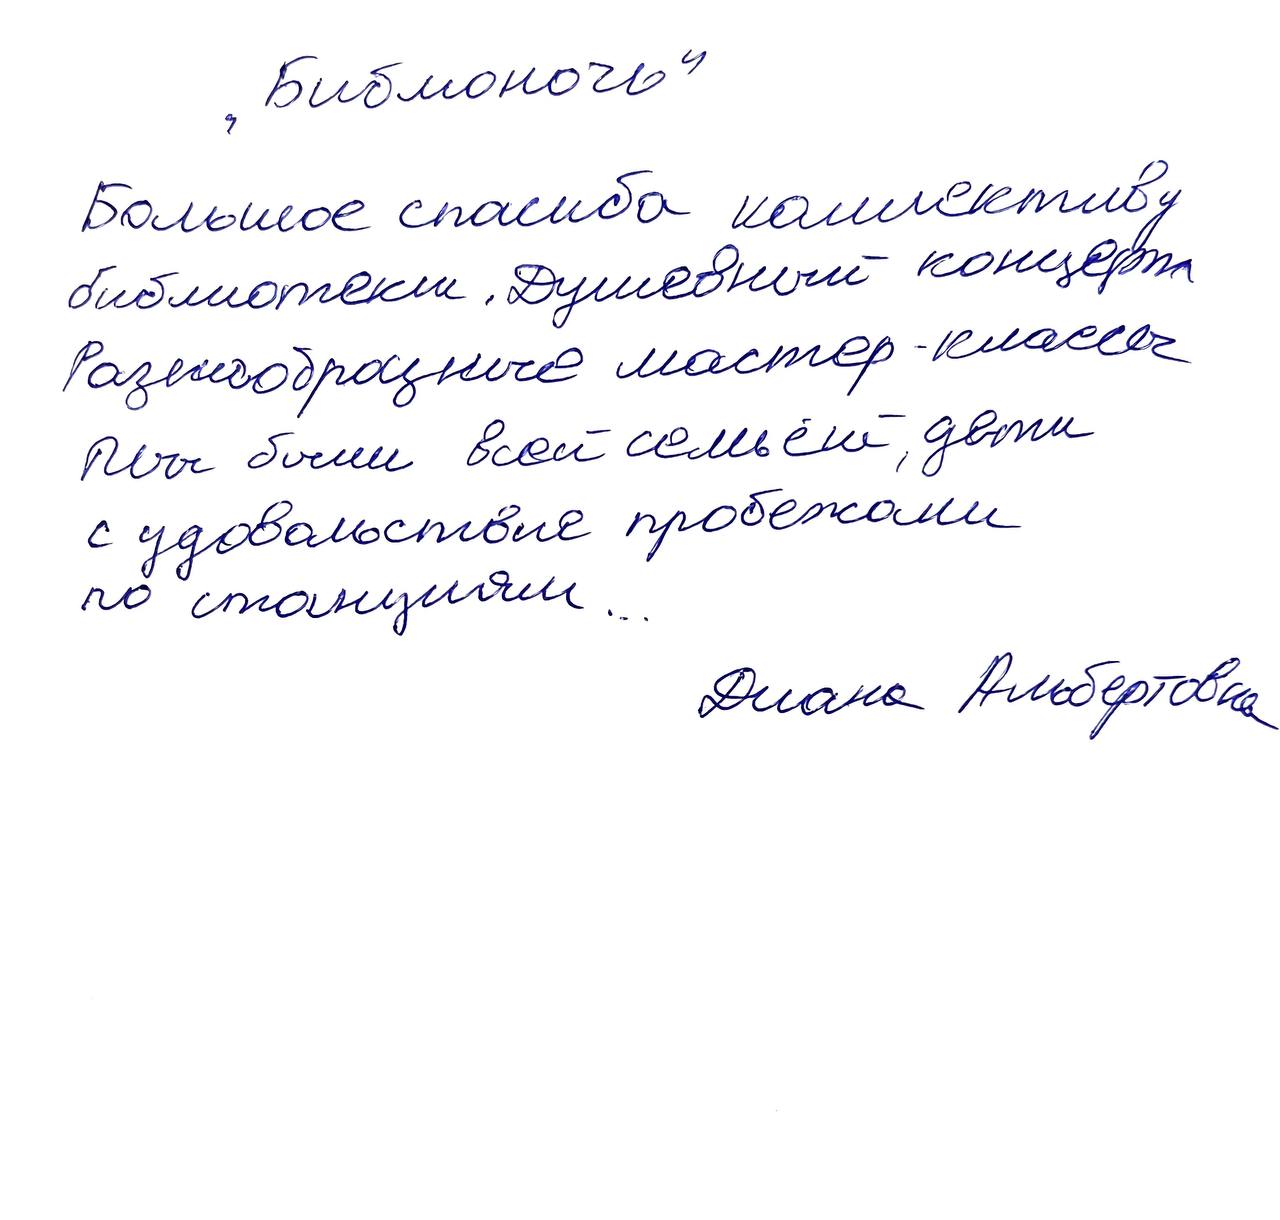 „Библионочь"
Большое спасиба коллективу
библиотеки. Душевный концерт
Разнообразные мастер-классы
Мы были всей семьёй, дети
с удовольствие пробежали
по станциям...
Диана Альбертовна